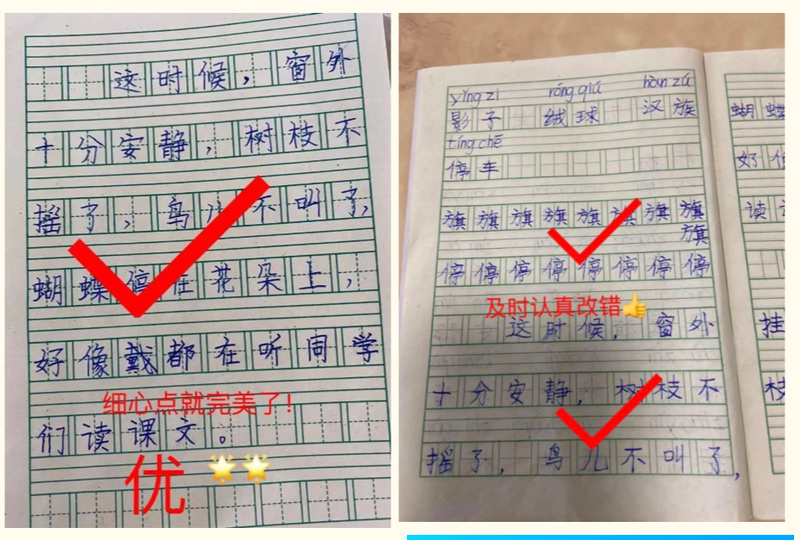 这时候，窗外
十分安静，树枝不
摇了，鸟儿不叫了，
蝴蝶停在花朵上，
好像戴都在听同学
细心点就完美了!
们读课文。
优
yǐng zi róng qiú hàn zú
影子 绒球 汉族
tíng chē
停车
旗旗旗旗旗旗旗旗
旗
停停停停停停停停
及时认真改错
这时候，窗外
十分安静，树枝不
摇了，鸟儿不叫了，
蝴蝶
好
读